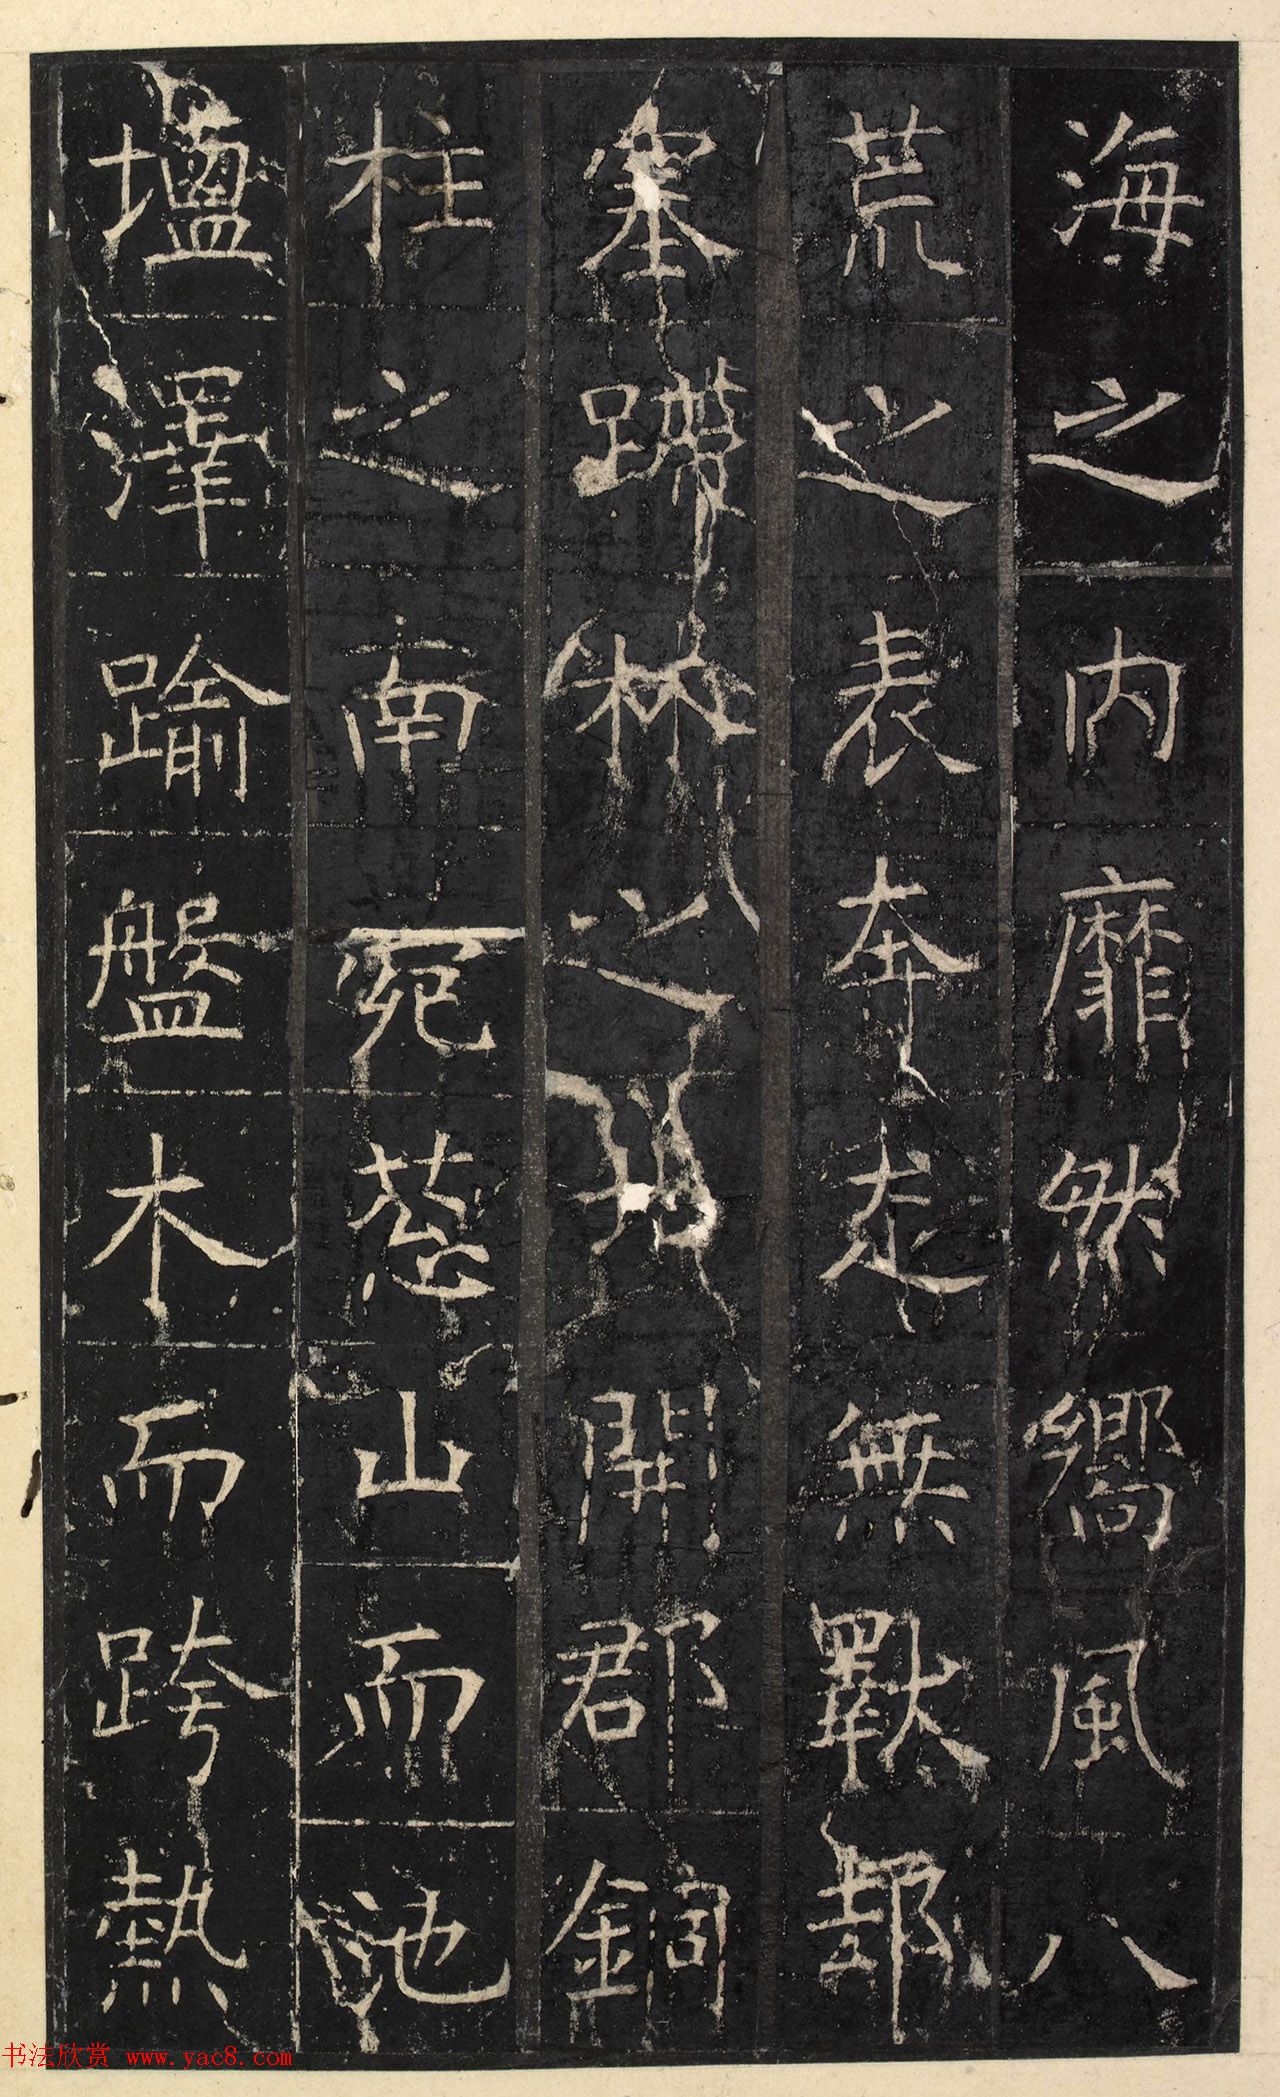 海之内靡然嚮風八
荒之表奔走無斁都
塞蹛林之地開郡銅
柱之南宛葱山而池
壒澤踰盤木而跨熱
书法欣赏 www.yac8.com